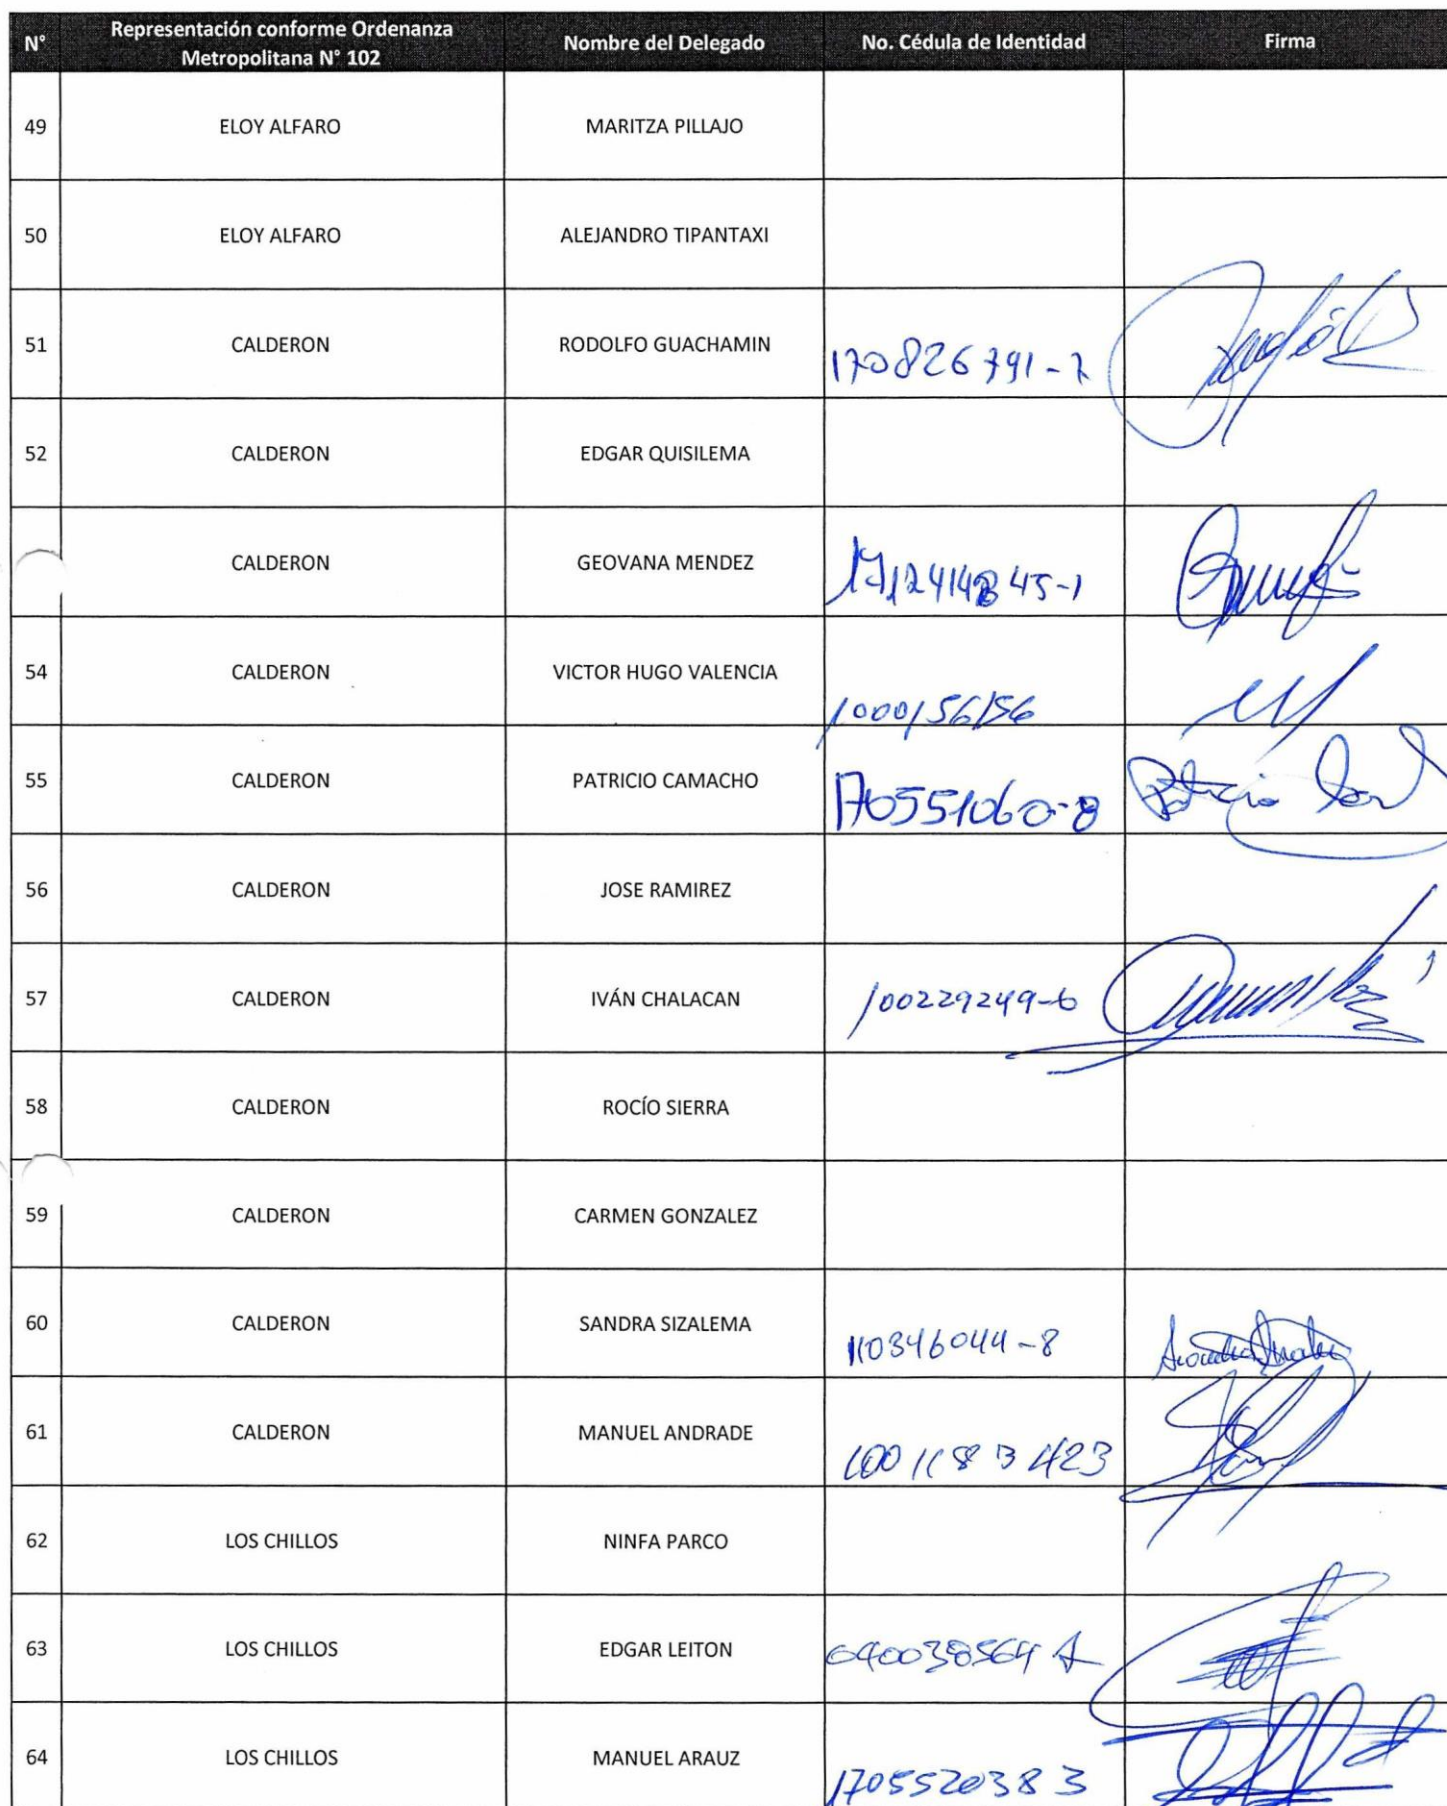 N° Representación conforme Ordenanza Metropolitana N° 102 Nombre del Delegado No. Cédula de Identidad Firma
49 ELOY ALFARO MARITZA PILLAJO
50 ELOY ALFARO ALEJANDRO TIPANTAXI
51 CALDERON RODOLFO GUACHAMIN 170826791-7
52 CALDERON EDGAR QUISILEMA
CALDERON GEOVANA MENDEZ
54 CALDERON VICTOR HUGO VALENCIA 1000156156
55 CALDERON PATRICIO CAMACHO 170551060-8 Patricio
56 CALDERON JOSE RAMIREZ
57 CALDERON IVÁN CHALACAN 100229249-6
58 CALDERON ROCÍO SIERRA
59 CALDERON CARMEN GONZALEZ
60 CALDERON SANDRA SIZALEMA 110346044-8
61 CALDERON MANUEL ANDRADE 1001183423
62 LOS CHILLOS NINFA PARCO
63 LOS CHILLOS EDGAR LEITON
64 LOS CHILLOS MANUEL ARAUZ 1705520383